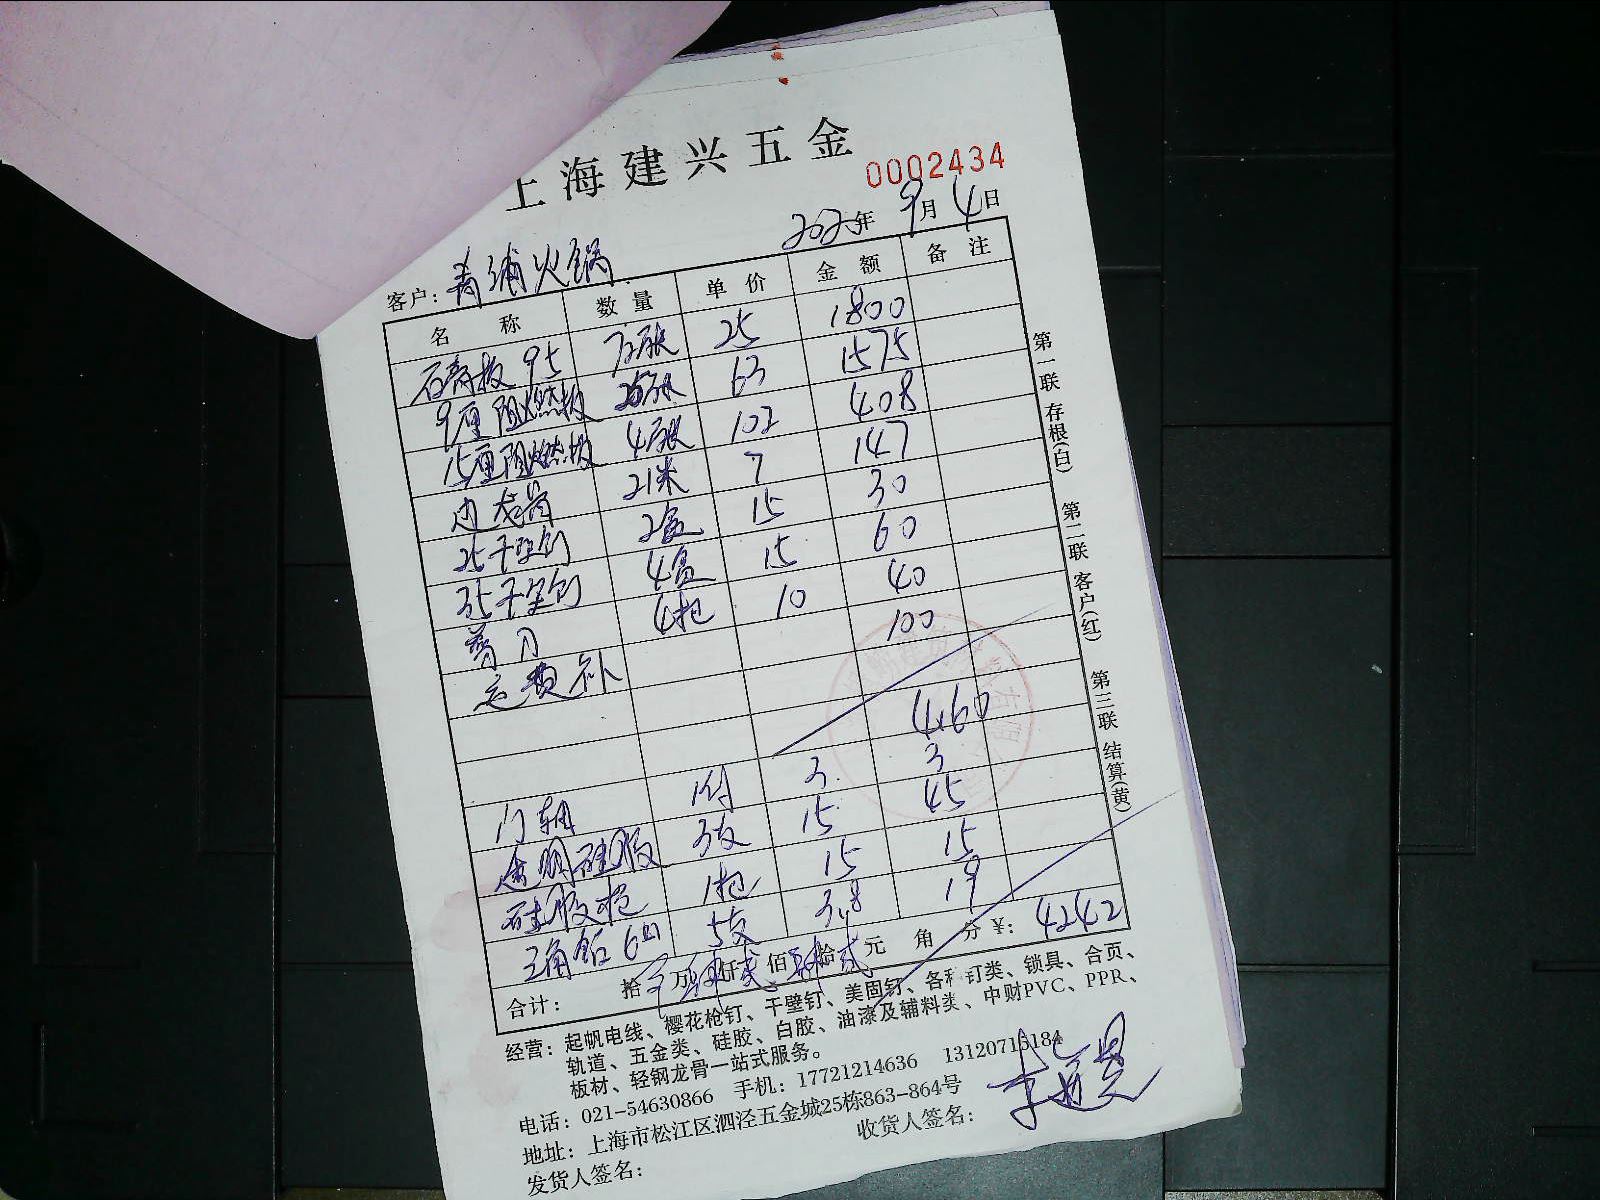 上海建兴五金
0002434
2020年 9月 4日
客户: 青浦火锅
名 称 数 量 单 价 金 额 备 注
石膏板 95 72张 25 1800
9厘阻燃板 25张 63 1575
15厘阻燃板 4张 102 408
边龙骨 21米 7 147
25干壁钉 2盒 15 30
35干壁钉 4盒 15 60
4把 10 40
运费补 100
4160
门轴 1付 3. 3
透明硅胶 3支 15 45
硅胶枪 1把 15 15
三角铝 6m 5支 3.8 19
合计: 拾 万 仟 佰 拾 元 角 分 ¥: 4242
经营: 起帆电线、樱花枪钉、干壁钉、美固钉、各种钉类、锁具、合页、
轨道、五金类、硅胶、白胶、油漆及辅料类、中财PVC、PPR、
板材、轻钢龙骨一站式服务。
电话: 021-54630866 手机: 17721214636 13120715184
地址: 上海市松江区泗泾五金城25栋863-864号
发货人签名: 收货人签名:
第一联 存根(白)
第二联 客户(红)
第三联 结算(黄)